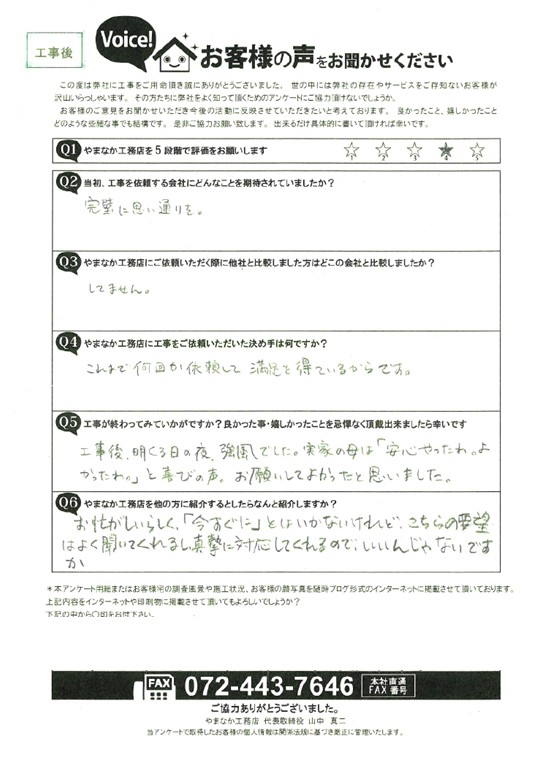 工事後
Voice!
お客様の声をお聞かせください
この度は弊社に工事をご用命頂き誠にありがとうございました。 世の中には弊社の存在やサービスをご存知ないお客様が
沢山いらっしゃいます。 その方たちに弊社をよく知って頂くためのアンケートにご協力頂けないでしょうか。
お客様のご意見をお聞かせいただき今後の活動に反映させていただきたいと考えております。 良かったこと、嬉しかったこと
どのような些細な事でも結構です。 是非ご協力お願い致します。 出来るだけ具体的に書いて頂ければ幸いです。
Q1 やまなか工務店を5段階で評価をお願いします
1 2 3 4 5
Q2 当初、工事を依頼する会社にどんなことを期待されていましたか？
完璧に思い通りを。
Q3 やまなか工務店にご依頼いただく際に他社と比較しました方はどこの会社と比較しましたか？
してません。
Q4 やまなか工務店に工事をご依頼いただいた決め手は何ですか？
これまで何回か依頼して満足を得ているからです。
Q5 工事が終わってみていかがですか？良かった事・嬉しかったことを忌憚なく頂戴出来ましたら幸いです
工事後、明くる日の夜、強風でした。実家の母は「安心やったわ。よ
かったわ。」と喜びの声。お願いしてよかったと思いました。
Q6 やまなか工務店を他の方に紹介するとしたらなんと紹介しますか？
お忙がしいらしく、「今すぐに」とはいかないけれど、こちらの要望
はよく聞いてくれるし真摯に対応してくれるので、いいんじゃないです
か
＊本アンケート用紙またはお客様宅の調査風景や施工状況、お客様の顔写真を随時ブログ形式のインターネットに掲載させて頂いております。
上記内容をインターネットや印刷物に掲載させて頂いてもよろしいでしょうか？
下記の中から〇印をお付下さい。
FAX 072-443-7646 本社直通
FAX番号
ご協力ありがとうございました。
やまなか工務店 代表取締役 山中 真二
当アンケートで取得したお客様の個人情報は関係法規に基づき厳正に管理いたします。